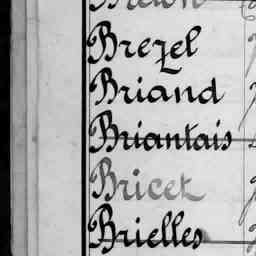 Breton
Brezel
Briand
Briantais
Bricet
Brielles